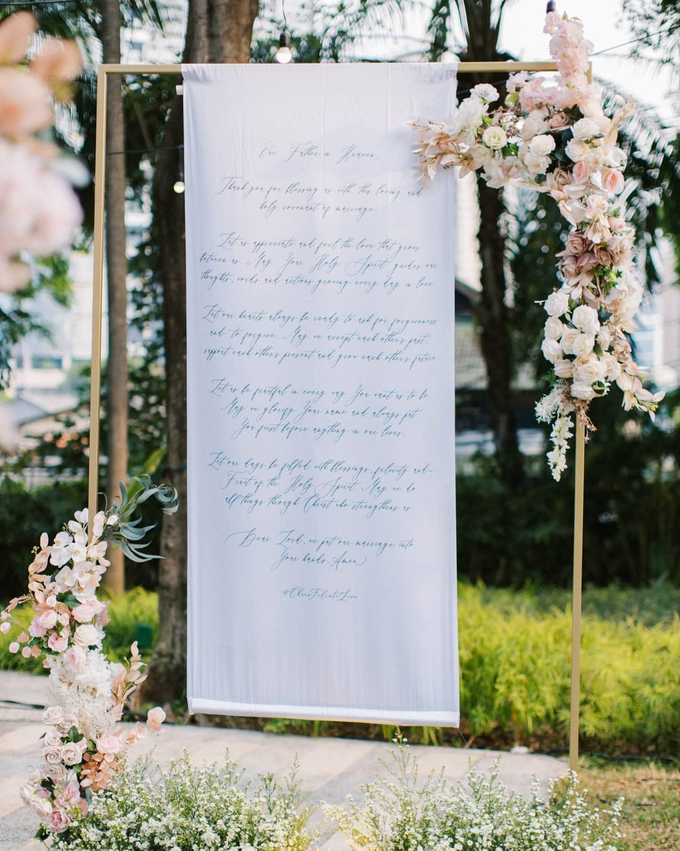 Our Father in Heaven,
Thank you for blessing us with this loving and
holy covenant of marriage.
Let us appreciate and feel the love that grows
between us. May Your Holy Spirit guides our
thoughts, words and actions growing every day in love.
Let our hearts always be ready to ask for forgiveness
and to forgive. May we accept each others past,
support each others present and grow each others future.
Let us be fruitful in every way You want us to be.
May we glorify Your name and always put
You first before anything in our lives.
Let our days be filled with blessings, felicity and
Fruit of the Holy Spirit. May we do
all things through Christ who strengthens us.
Dear Lord, we put our marriage into
Your hands. Amen